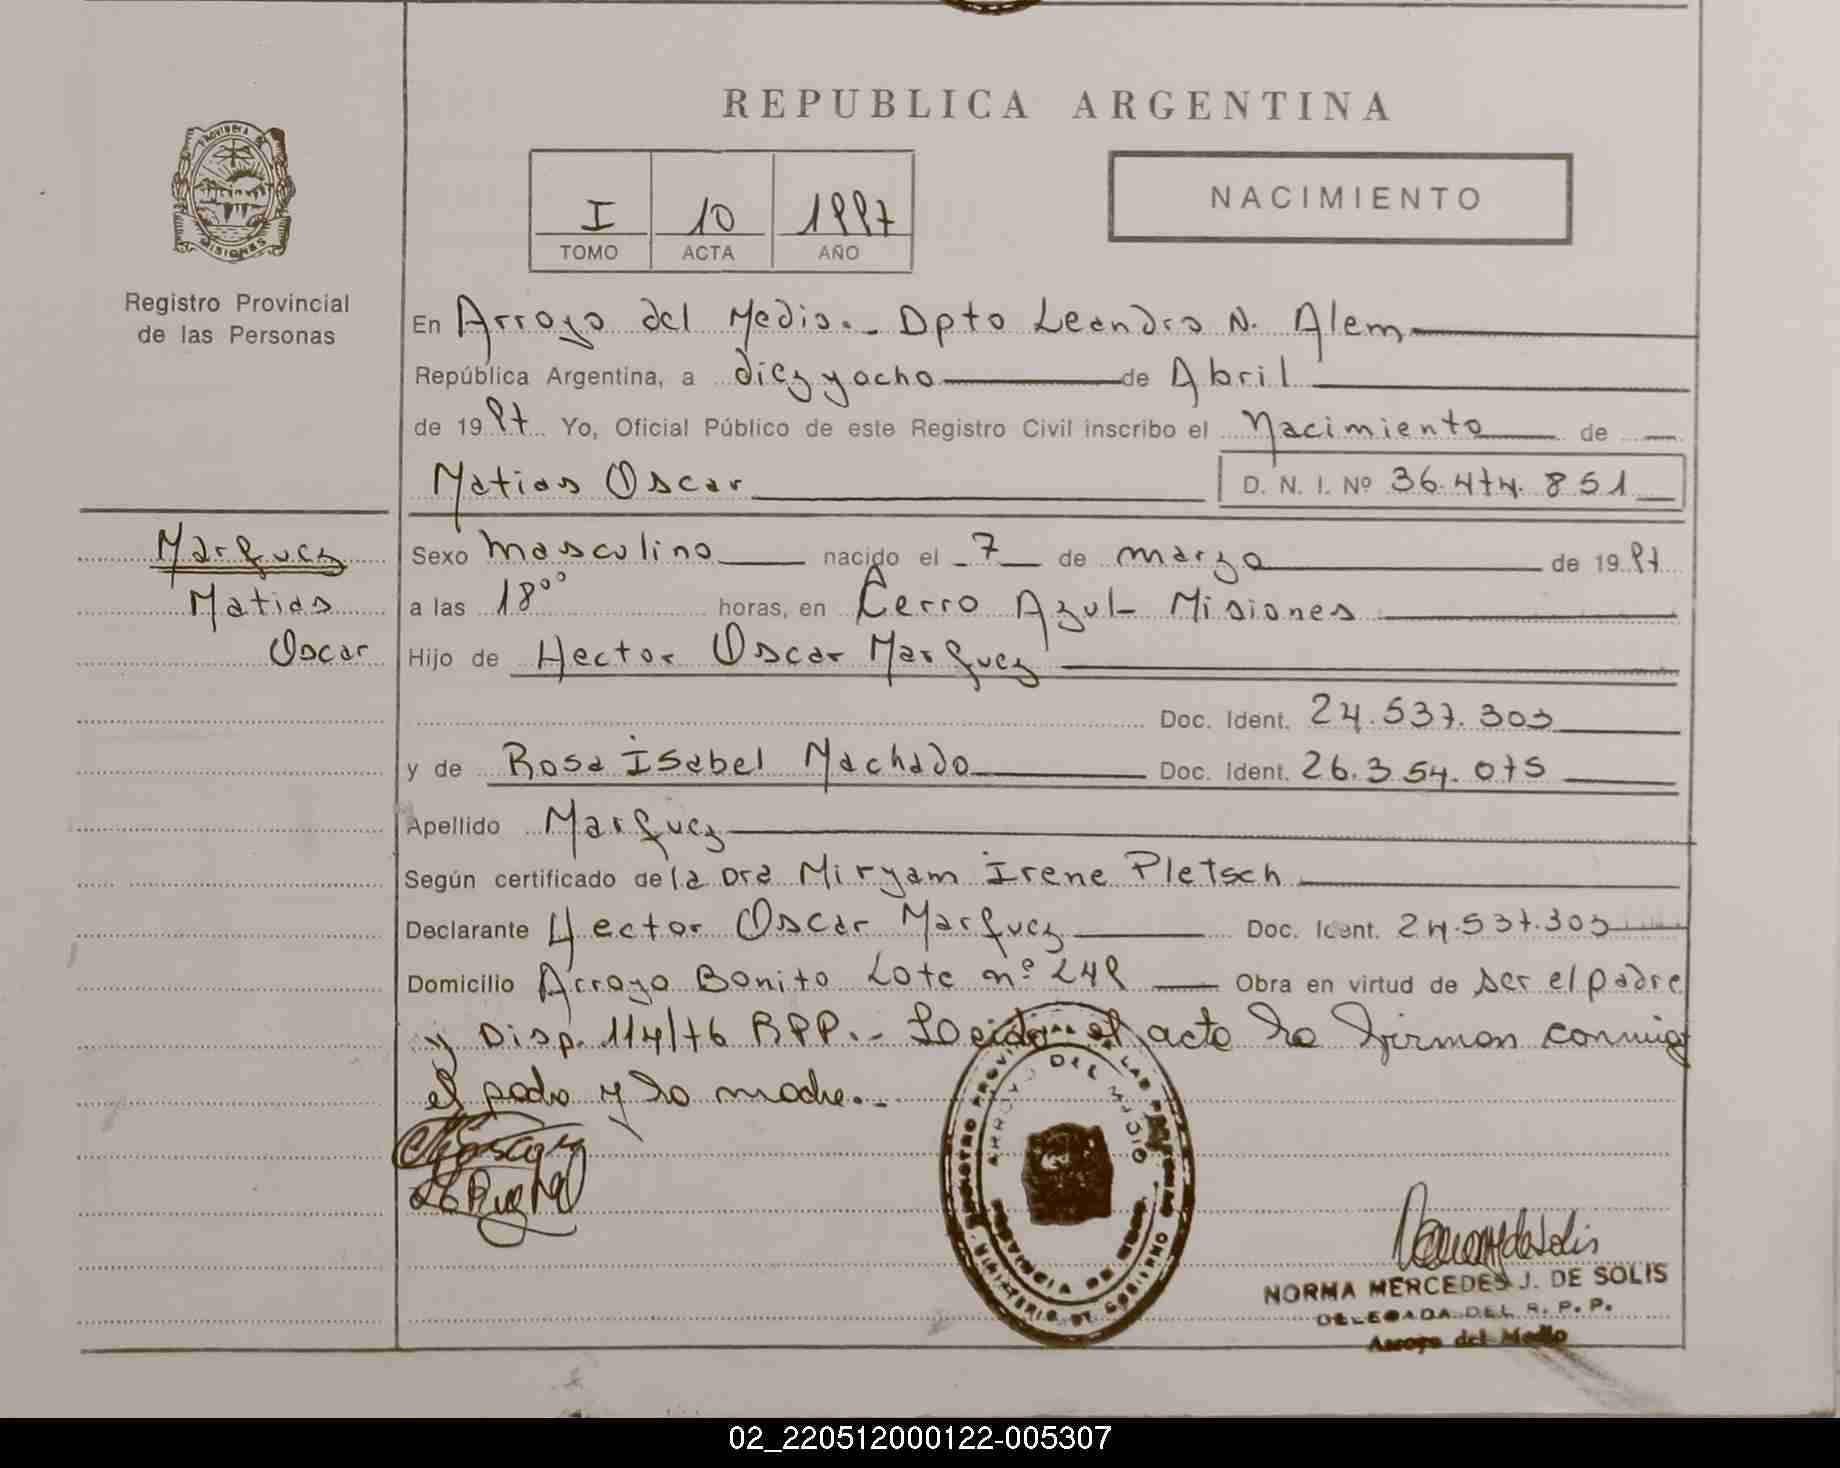 REPUBLICA ARGENTINA
PROVINCIA DE MISIONES
Registro Provincial
de las Personas
I 10 1997
TOMO ACTA AÑO
NACIMIENTO
En Arroyo del Medio.- Dpto Leandro N. Alem
República Argentina, a diez y ocho de Abril
de 1997 Yo, Oficial Público de este Registro Civil inscribo el Nacimiento de
Matias Oscar D. N. I. Nº 36.474.851
Marquez
Matias
Oscar
Sexo masculino nacido el 7 de marzo de 1997
a las 18⁰⁰ horas, en Cerro Azul - Misiones
Hijo de Hector Oscar Marquez
Doc. Ident. 24.537.303
y de Rosa Isabel Machado Doc. Ident. 26.354.075
Apellido Marquez
Según certificado de la Dra Miryam Irene Pletsch
Declarante Hector Oscar Marquez Doc. Ident. 24.537.303
Domicilio Arroyo Bonito Lote nº 249 Obra en virtud de ser el padre
y Disp. 114/76 RPP.- Leida el acta la firman conmigo
el padre y la madre.-
REGISTRO PROVINCIAL DE LAS PERSONAS
ARROYO DEL MEDIO
PROVINCIA DE MISIONES
MINISTERIO DE GOBIERNO
NORMA MERCEDES J. DE SOLIS
DELEGADA DEL R. P. P.
Arroyo del Medio
02_220512000122-005307